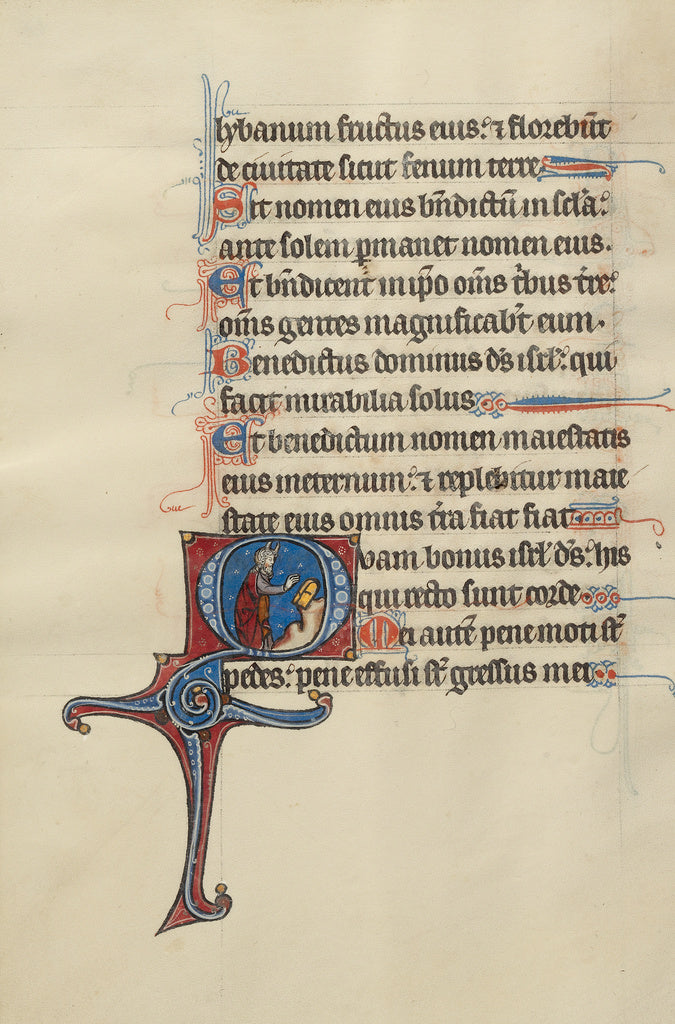 lybanum fructus eius: ⁊ florebūt
de ciuitate sicut fenum terre
Sit nomen eius bn̄dictū in sc̄la:
ante solem ꝑmanet nomen eius.
Et bn̄dicent in ip̄o om̄s tͥbus tr̄e:
om̄s gentes magnificab̄t eum.
Benedictus dominus d̄s isrl̄: qui
facit mirabilia solus
Et benedictum nomen maiestatis
eius ineternum: ⁊ replebitur maie
state eius omnis tr̄a fiat fiat
Quam bonus isrl̄ d̄s: his
qui recto sunt corde
Mei autē pene moti st̄
pedes: pene effusi st̄ gressus mei